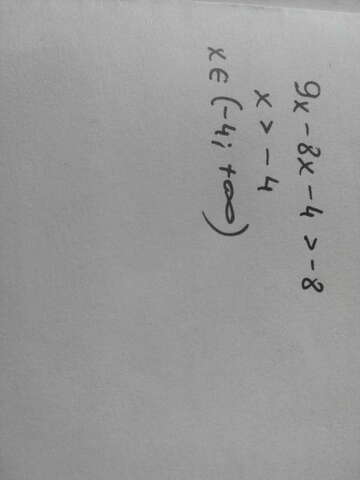 9x - 8x - 4 > -8
x > -4
x ∈ (-4; +∞)